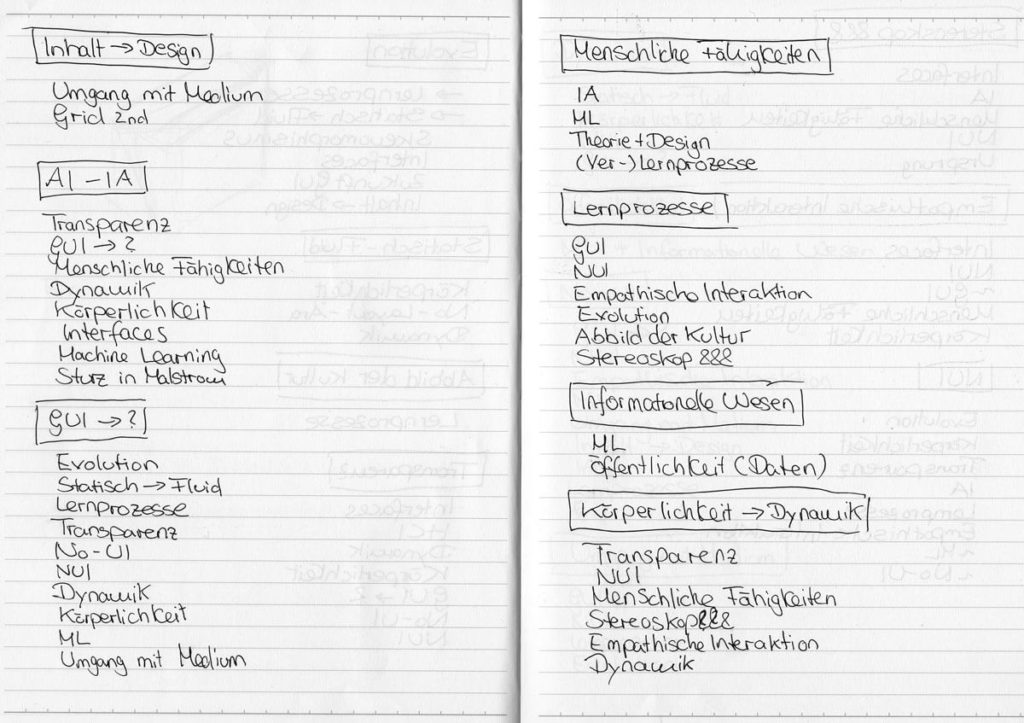 Inhalt → Design
Umgang mit Medium
Grid 2nd
AI – IA
Transparenz
GUI → ?
Menschliche Fähigkeiten
Dynamik
Körperlichkeit
Interfaces
Machine Learning
Sturz in Malstrom
GUI → ?
Evolution
Statisch → Fluid
Lernprozesse
Transparenz
No-UI
NUI
Dynamik
Körperlichkeit
ML
Umgang mit Medium
Menschliche Fähigkeiten
IA
ML
Theorie + Design
(Ver-)Lernprozesse
Lernprozesse
GUI
NUI
Empathische Interaktion
Evolution
Abbild der Kultur
Stereoskop 888
Informationelle Wesen
ML
Öffentlichkeit (Daten)
Körperlichkeit → Dynamik
Transparenz
NUI
Menschliche Fähigkeiten
Stereoskop 888
Empathische Interaktion
Dynamik